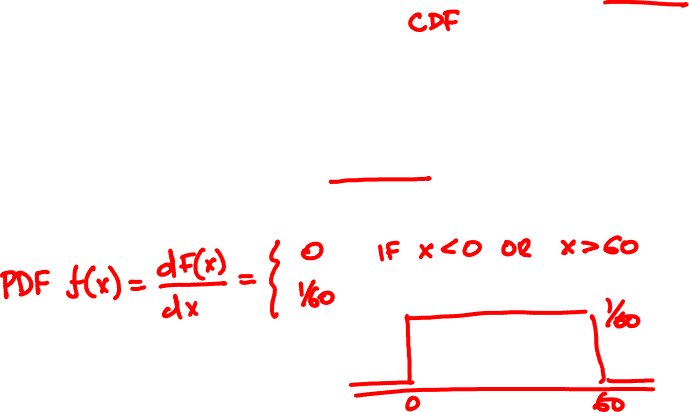 CDF
PDF f(x) = dF(x)/dx = { 0 IF x < 0 OR x > 60
1/60
1/60
0 60